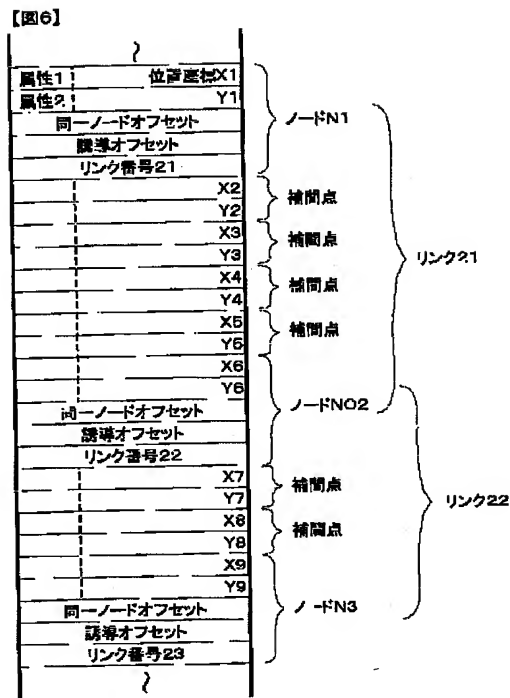 【図6】
属性1 位置座標X1
属性2 Y1
同一ノードオフセット
誘導オフセット
リンク番号21
X2
Y2
X3
Y3
X4
Y4
X5
Y5
X6
Y6
同一ノードオフセット
誘導オフセット
リンク番号22
X7
Y7
X8
Y8
X9
Y9
同一ノードオフセット
誘導オフセット
リンク番号23
ノードN1
補間点
補間点
補間点
補間点
ノードNO2
補間点
補間点
ノードN3
リンク21
リンク22